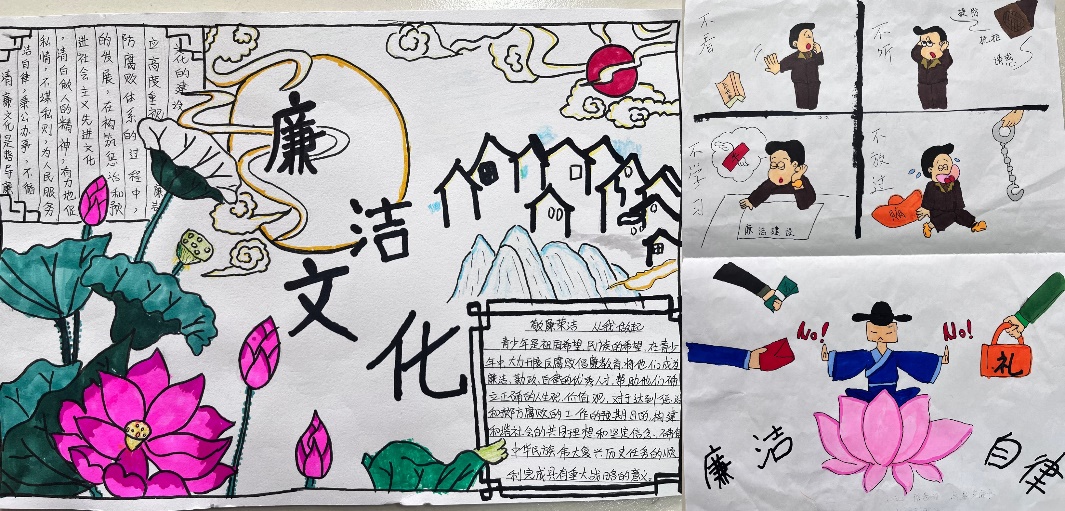 清廉文化是倡导廉
洁自律,秉公办事,不徇
私情,不谋私利,为人民服务
,清白做人的精神,有力地促
进社会主义先进文化
的发展,在构筑惩治和预
防腐败体系的过程中,
应高度重视廉洁
文化的建设
廉
洁
文
化
敬廉崇洁 从我做起
青少年是祖国希望,民族的希望,在青少
年中大力开展反腐败倡廉教育,将他们成为
廉洁、勤政、自律的优秀人才,帮助他们确
立正确的人生观、价值观,对于达到
和预防腐败的工作的预期目的,构建
和谐社会的共同理想和坚定信念,确保
中华民族伟大复兴历史任务的顺
利完成具有重大战略的意义。
不看
不听
不学习
廉洁建设
不放过
No!
No!
礼
廉洁
自律